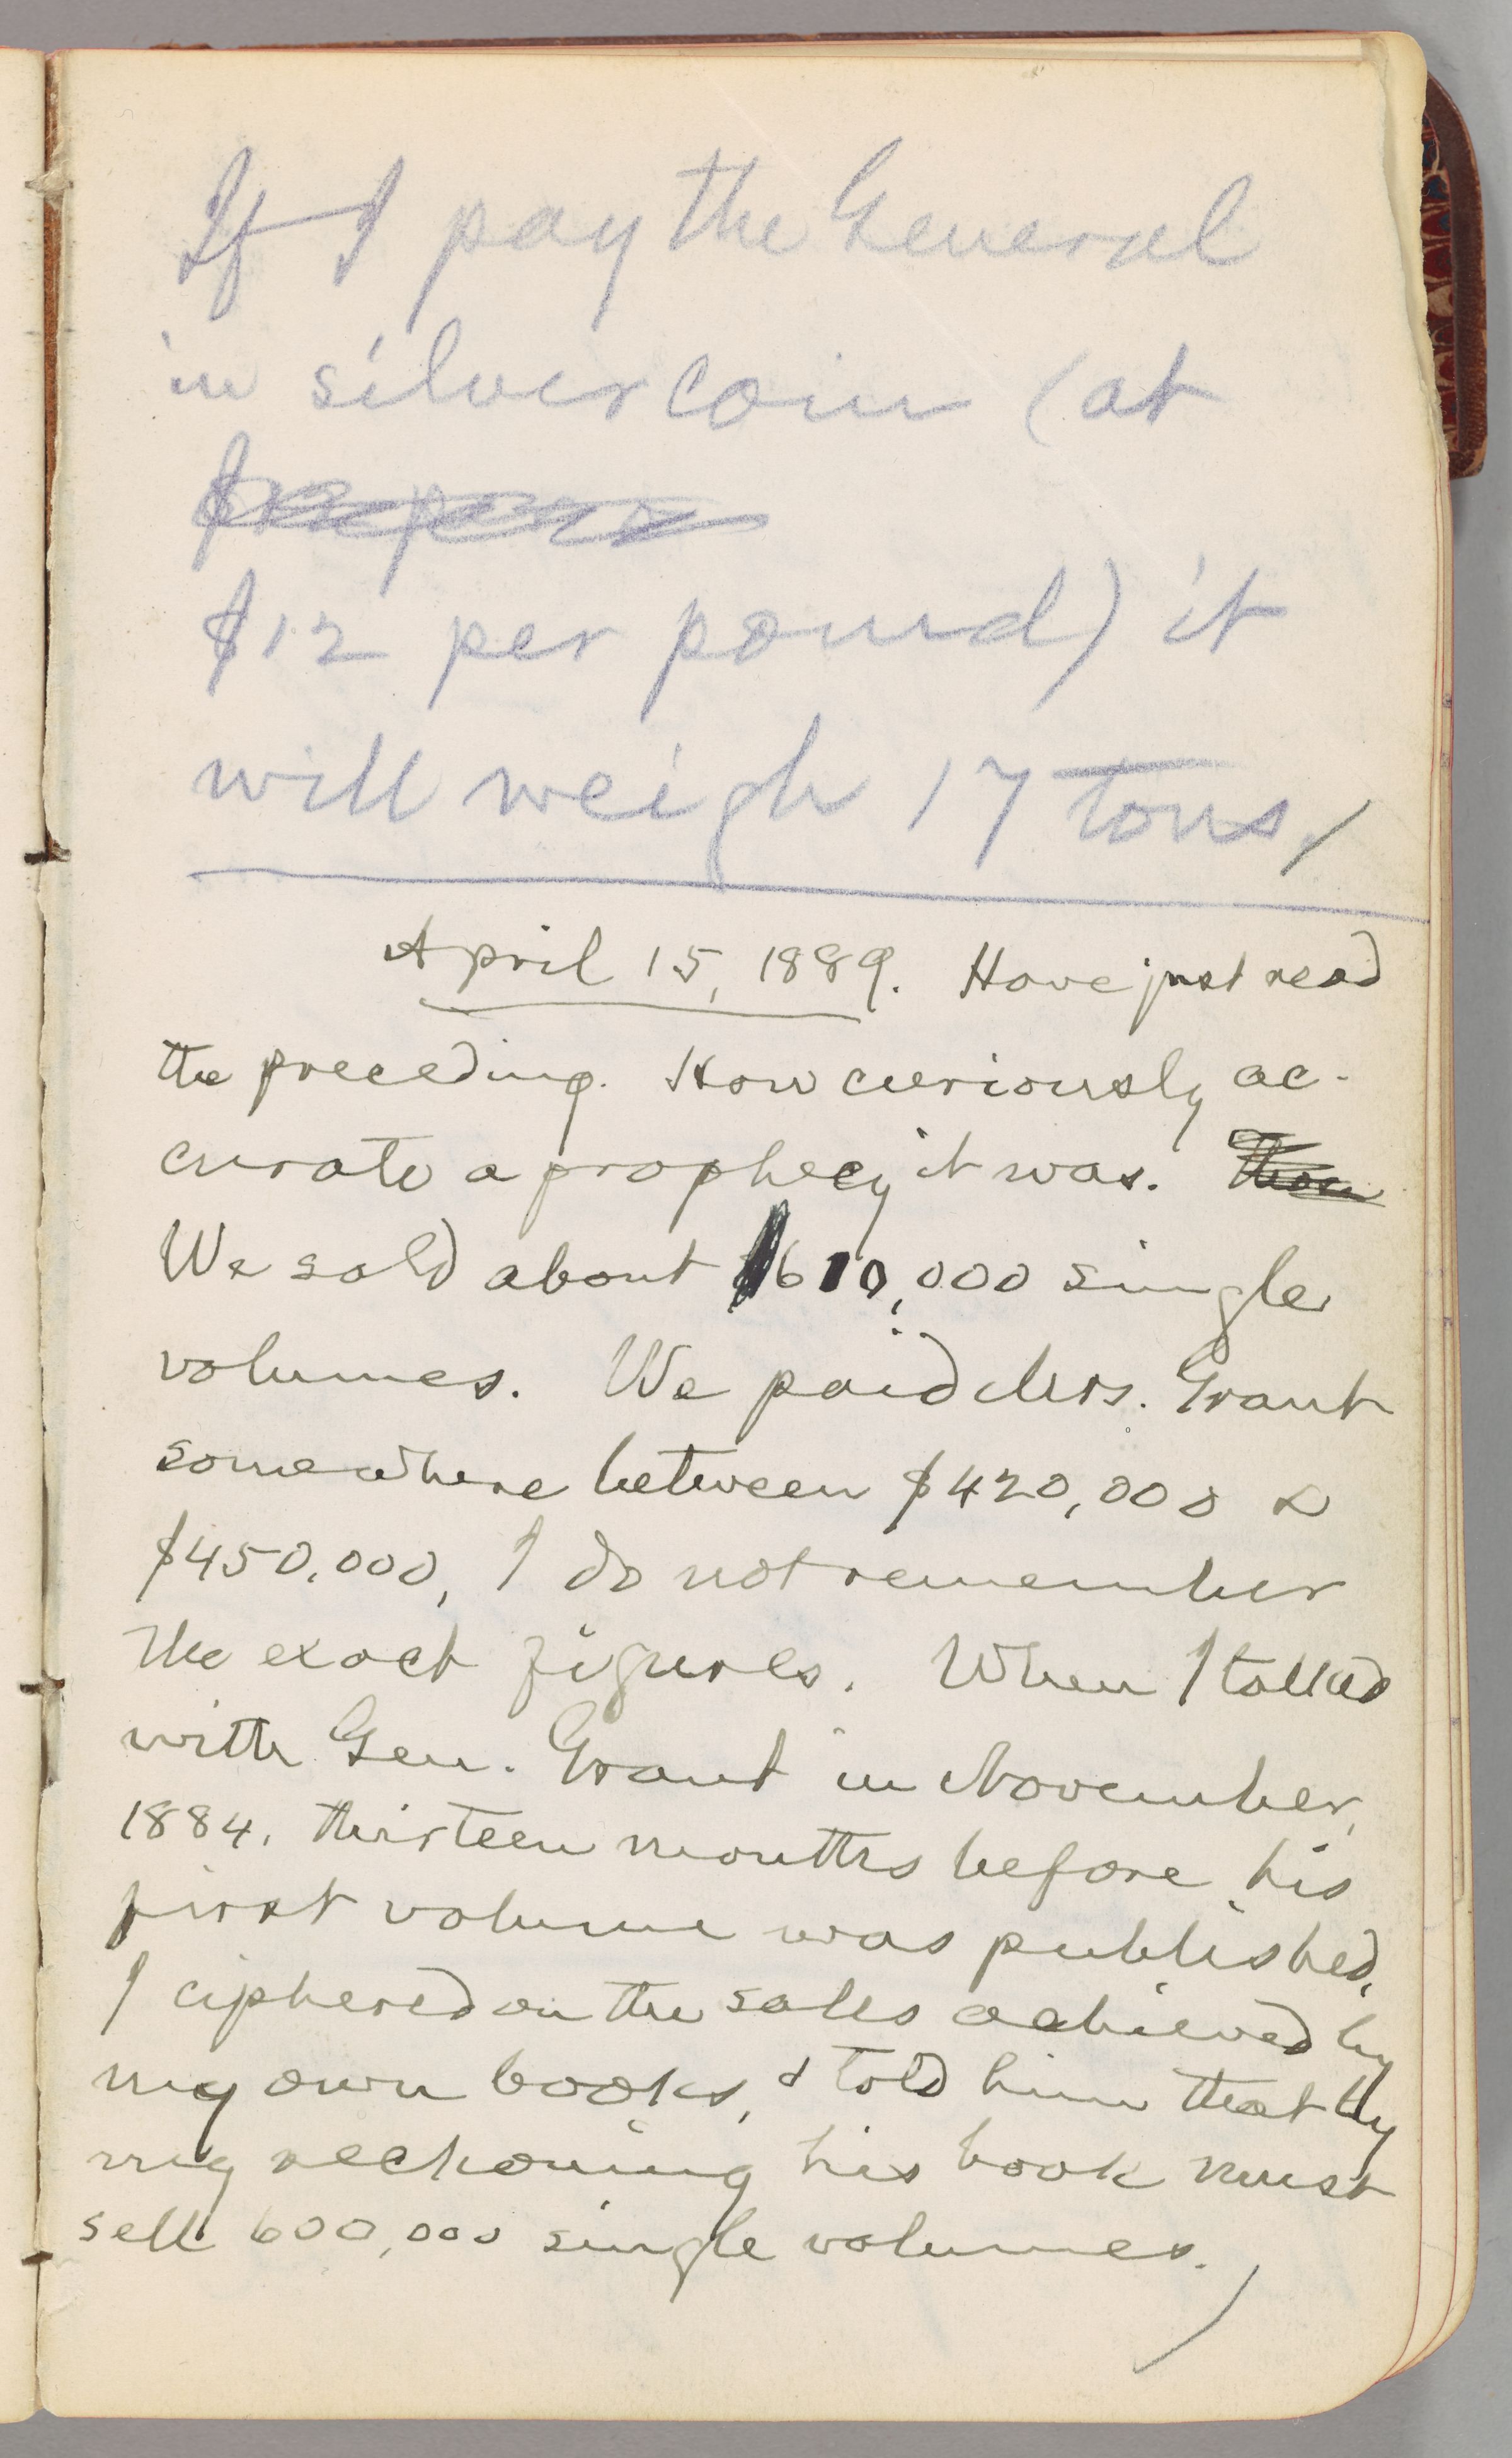 If I pay the General
in silver coin (at
$12 per pound) it
will weigh 17 tons.
April 15, 1889. Have just read
the preceding. How curiously ac-
curate a prophecy it was.
We sold about 610,000 single
volumes. We paid Mrs. Grant
somewhere between $420,000 &
$450,000, I do not remember
the exact figures. When I talked
with Gen. Grant in November,
1884, thirteen months before his
first volume was published,
I ciphered on the sales achieved by
my own books, & told him that by
my reckoning his book must
sell 600,000 single volumes.